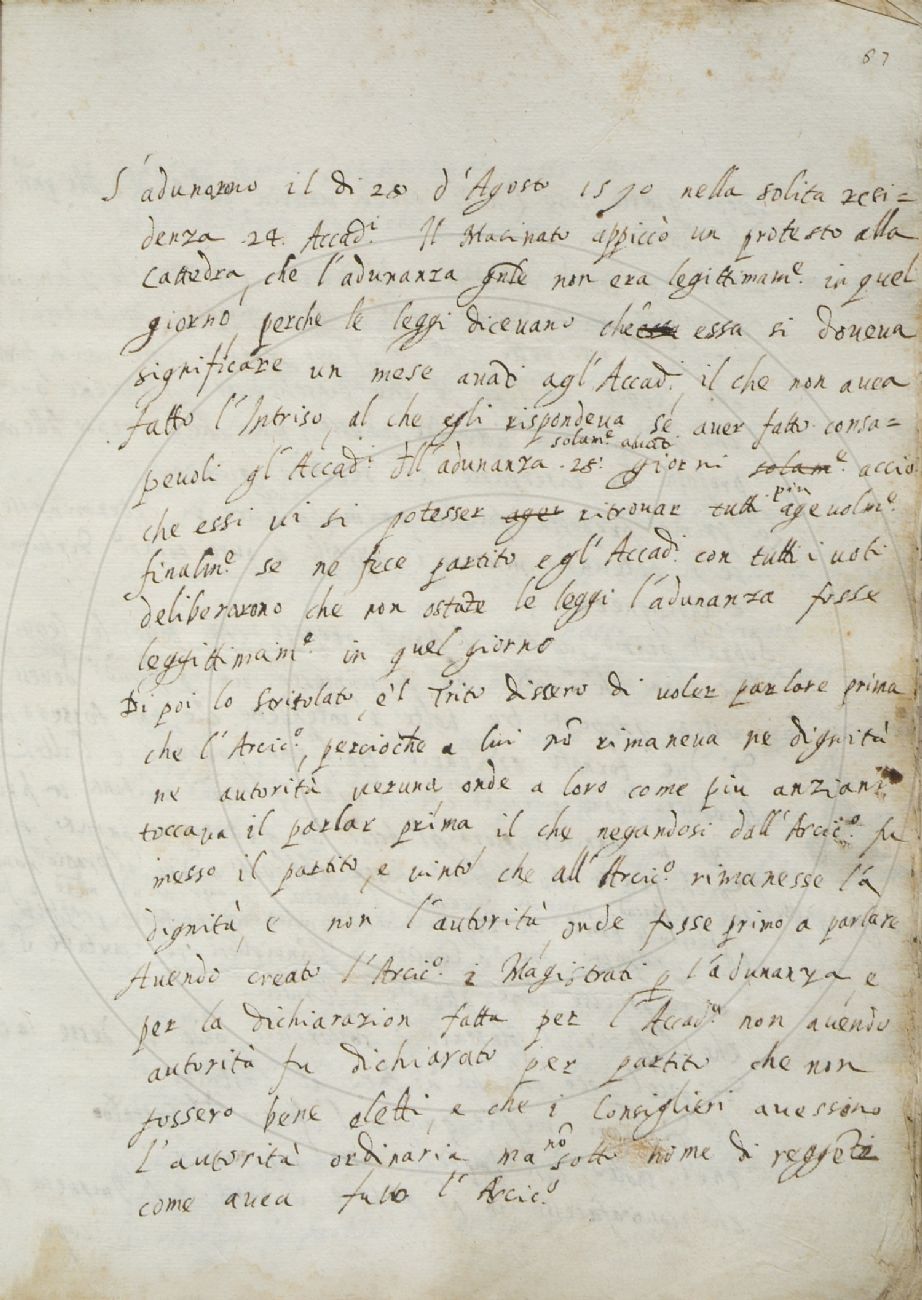 67
S'adunarono il dì 28 d'Agosto 1590 nella solita resi=
denza 24. Accad.i Il Macinato appiccò un protesto alla
Cattedra, che l'adunanza gn̄le non era legittimam.e in quel
giorno, perche le leggi dicevano che essa si doveva
significare un mese avāti agl'Accad. il che non avea
fatto l'Intriso, al che egli rispondeva se aver fatto consa=
pevoli gl'Accad.i dll'adunanza 28. giorni solam.e accio
solam.e avāti
che essi vi si potesser ager ritrovar tutti più agevolm.e
finalm.e se ne fece partito e gl'Accad.i con tutti i voti
deliberarono che non ostāte le leggi l'adunanza fosse
leggittimam.e in quel giorno
Di poi lo Stritolato, e'l Trito dissero di voler parlare prima
che l'Arcic.o, percioche a lui nō rimaneva ne dignità
ne autorità veruna onde a loro come piu anziani
toccava il parlar prima il che negandosi dall'Arcic.o fu
messo il partito, e vinto che all'Arcic.o rimanesse la
dignità, e non l'autorità, onde fosse primo a parlare
Avendo creato l'Arcic.o i Magistrati p l'adunanza, e
per la dichiarazion fatta per l'Accad.a non avendo
autorità fu dichiarato per partito che non
fossero bene eletti, e che i Consiglieri avessono
l'autorità ordinaria ma nō sotto nome di reggēti
come avea fatto l'Arcic.o